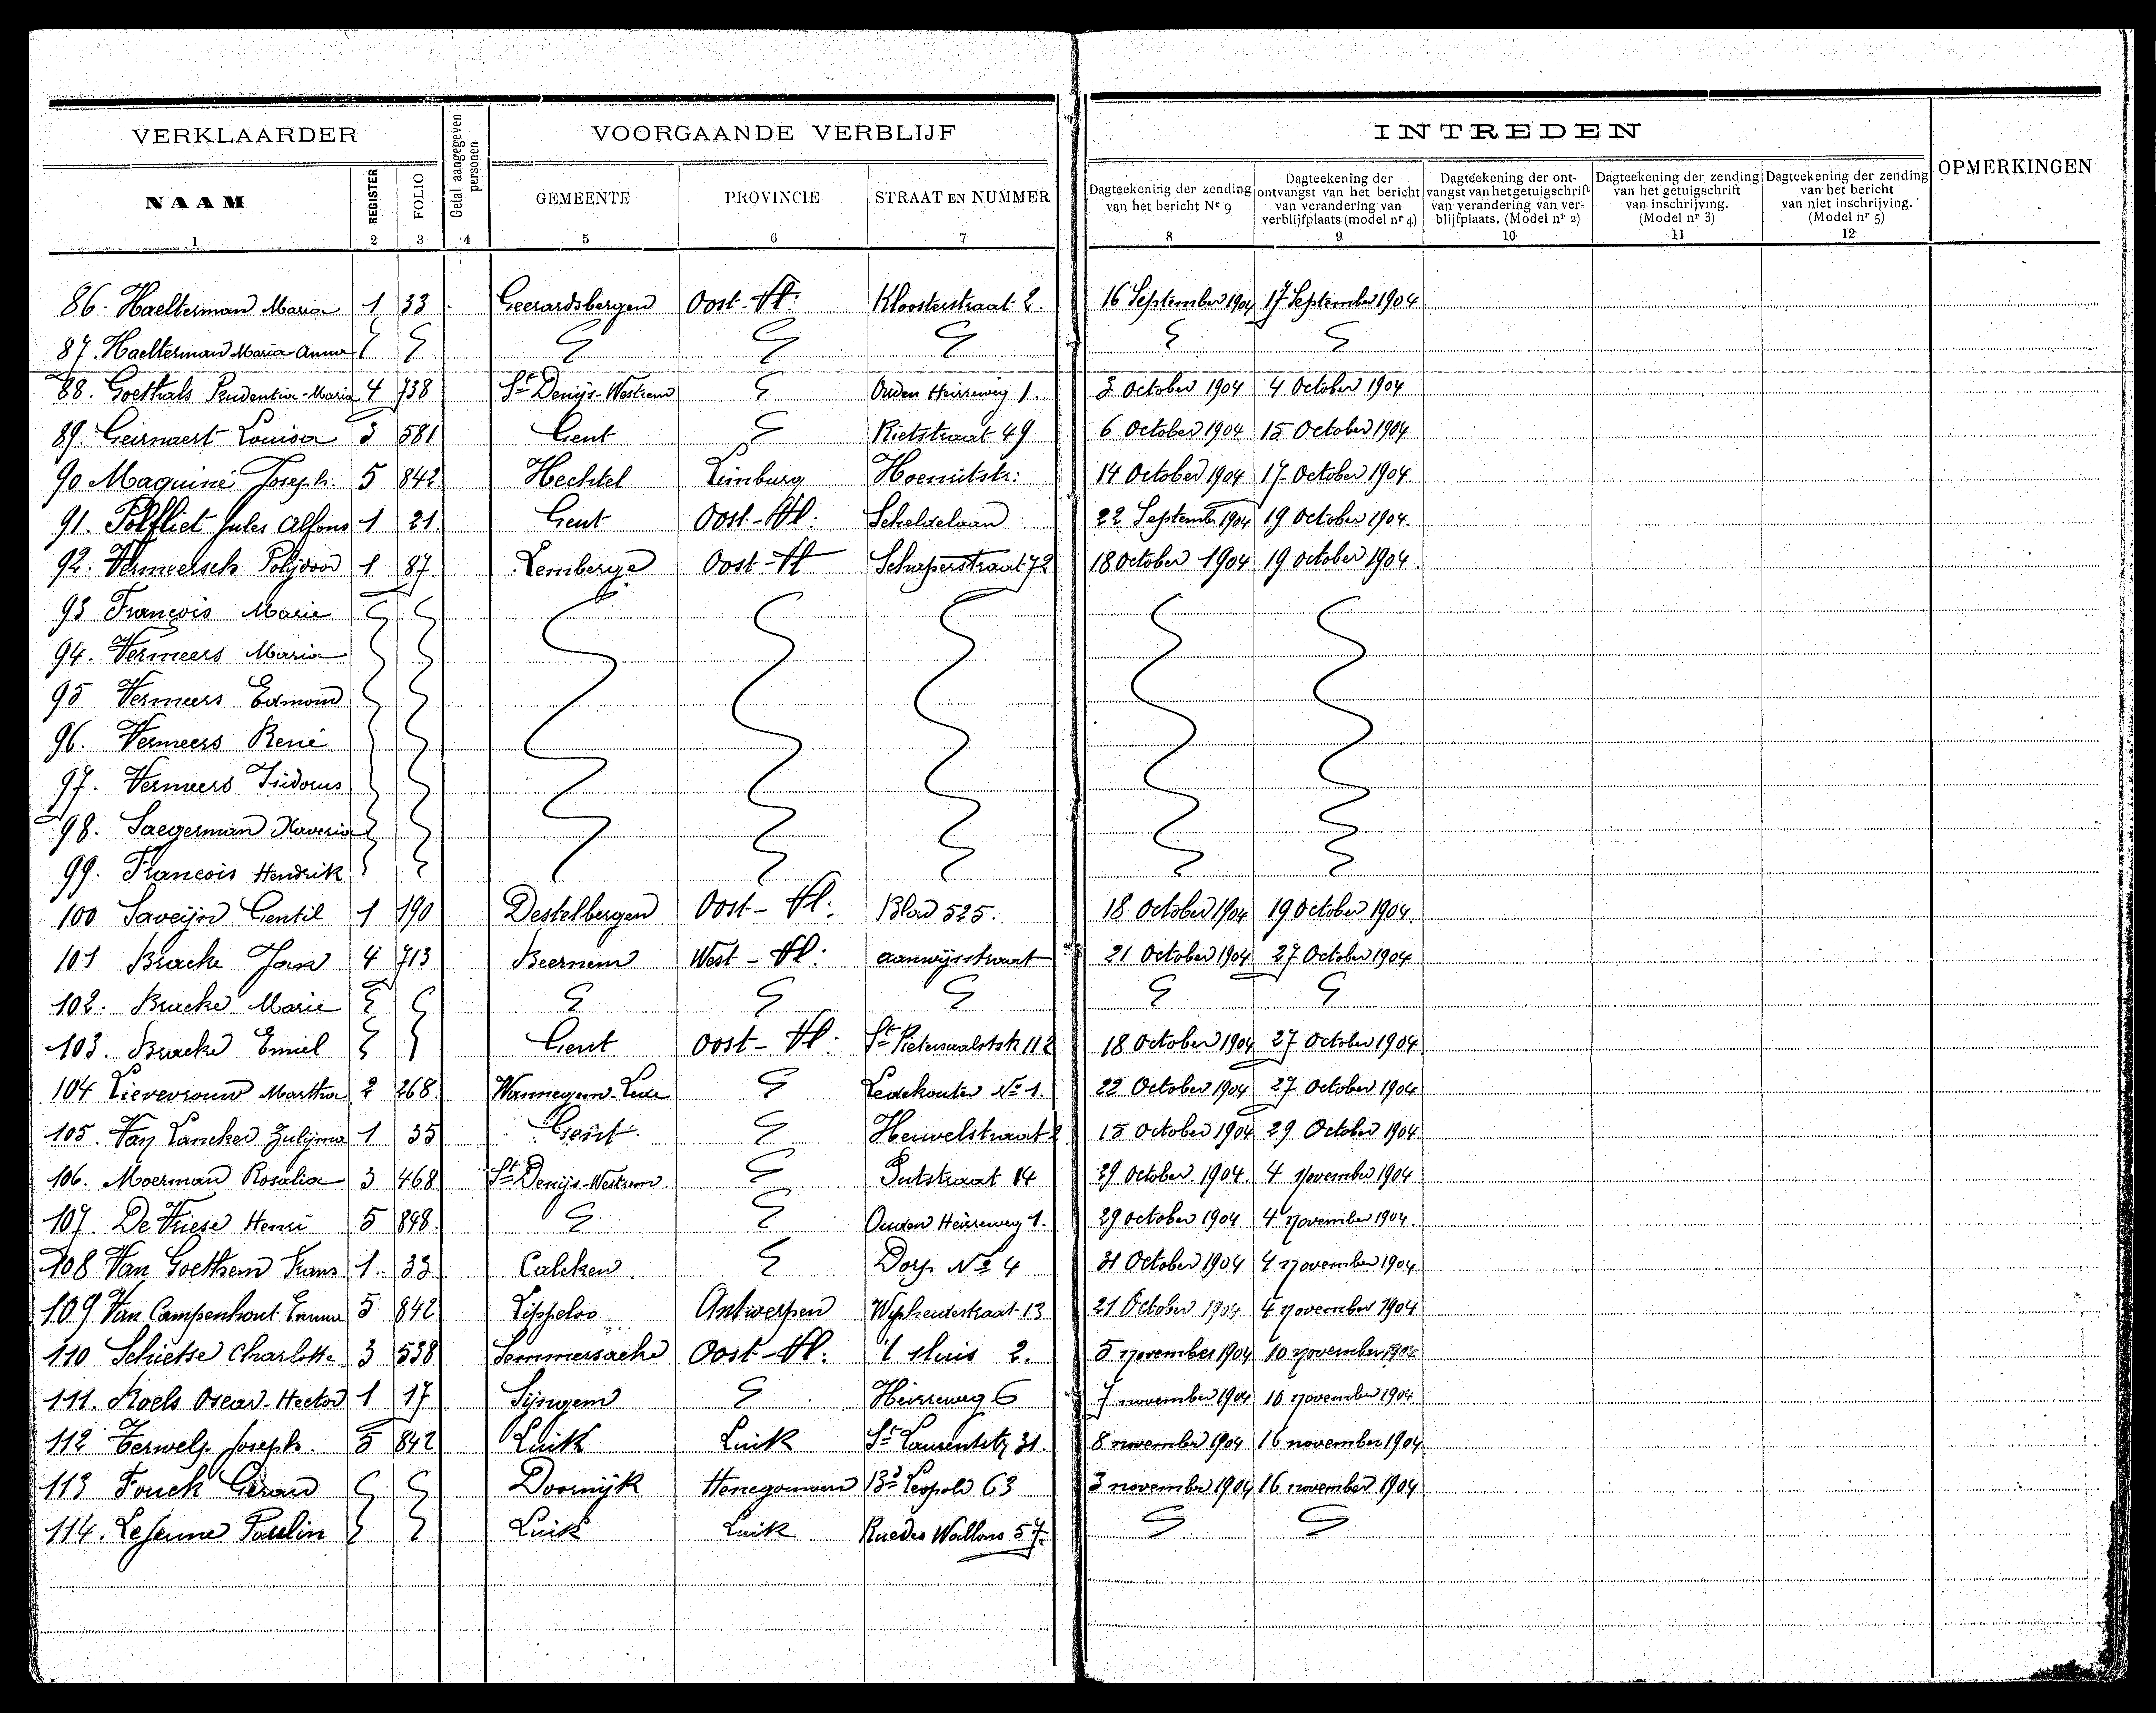 VERKLAARDER
Getal aangegeven personen
VOORGAANDE VERBLIJF
INTREDEN
OPMERKINGEN
NAAM
REGISTER
FOLIO
GEMEENTE
PROVINCIE
STRAAT EN NUMMER
Dagteekening der zending van het bericht Nr 9
Dagteekening der ontvangst van het bericht van verandering van verblijfplaats (model nr 4)
Dagteekening der ont-vangst van het getuigschrift van verandering van ver-blijfplaats. (Model nr 2)
Dagteekening der zending van het getuigschrift van inschrijving. (Model nr 3)
Dagteekening der zending van het bericht van niet inschrijving. (Model nr 5)
1 2 3 4 5 6 7 8 9 10 11 12
86. Haelterman Maria 1 33 Geerardsbergen Oost-Vl: Kloosterstraat 2. 16 September 1904 17 September 1904
87. Haelterman Maria-Anna
88. Goethals Prudentia-Maria 4 738 St Denijs-Westrem Ouden Heirweg 1. 3 October 1904 4 October 1904
89. Geirnaert Louisa 3 581 Gent Rietstraat 49 6 October 1904 15 October 1904
90 Maquiné Joseph. 5 842 Hechtel Limburg 14 October 1904 17 October 1904
91. Polfliet Jules Alfons 1 21 Gent Oost-Vl: Scheldelaan 22 September 1904 19 October 1904
92. Vermeersch Polydoor 1 87 Lemberge Oost-Vl Schaperstraat 72 18 October 1904 19 October 1904
93 François Marie
94. Vermeers Maria
95 Vermeers Edmond
96. Vermeers René
97. Vermeers Isidorus
98. Saegerman Xaveria
99. Francois Hendrik
100 Saveijn Gentil 1 190 Destelbergen Oost-Vl: 525. 18 October 1904 19 October 1904
101 Bracke Jan 4 713 Beernem West-Vl: aanwijsstraat 21 October 1904 27 October 1904
102. Bracke Marie
103. Bracke Emiel Gent Oost-Vl: St Pietersaalststr 112 18 October 1904 27 October 1904
104 Lievevrouw Martha 2 268 Wannegem-Lede Ledekouter No 1. 22 October 1904 27 October 1904
105. Van Lancker Zulijma 1 35 Gent Heuvelstraat 15 October 1904 29 October 1904
106. Moerman Rosalia 3 468 St Denijs-Westrem. Putstraat 14 29 October 1904 4 November 1904
107. De Vriese Henri 5 898 Ouden Heirweg 1. 29 October 1904 4 november 1904.
108 Van Goethem Frans 1 33 Calcken Dorp No 4 31 October 1904 4 november 1904
109 Van Campenhout Emma 5 842 Lippeloo Antwerpen 13 21 October 1904 4 november 1904
110 Schietse Charlotte 3 538 Semmersacke Oost-Vl: 't sluis 2. 5 november 1904 10 november 1904
111. Roels Oscar-Hector 1 17 Sijngem Heirweg 6 7 november 1904 10 november 1904
112 Terwelp Joseph. 5 842 Luik Luik St Laurentstr 31. 8 november 1904 16 november 1904
113 Fouck Gerard Doornijk Henegouwen Bd Leopold 63 3 november 1904 16 november 1904
114. Lejeune Paulin Luik Luik Rue des Wallons 57.